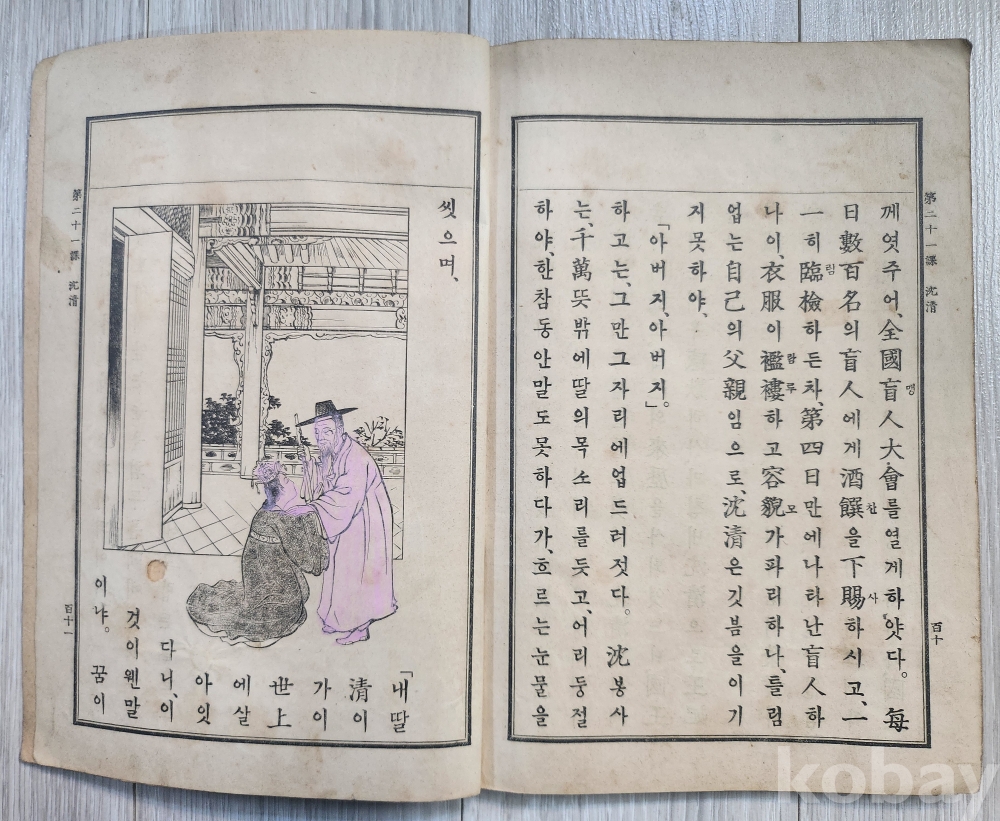 第二十一課 沈清
百十
께엿주어、全國盲人大會를열게하얏다。 每
맹
日數百名의盲人에게酒饌을下賜하시고、一
찬 사
一히臨檢하든차、第四日만에나라난盲人하
림
나이、衣服이襤褸하고容貌가파리하나、틀림
람루 모
업는自己의父親임으로、沈清은깃븜을이기
지못하야、
「아버지、아버지」。
하고는、그만그자리에업드러젓다。 沈봉사
는、千萬뜻밖에딸의목소리를듯고、어리둥절
하야、한참동안말도못하다가、흐르는눈물을
씻으며、
「내딸
清이
가이
世上
에살
아잇
다니、이
것이웬말
이냐。 꿈이
第二十一課 沈清
百十一
kobay